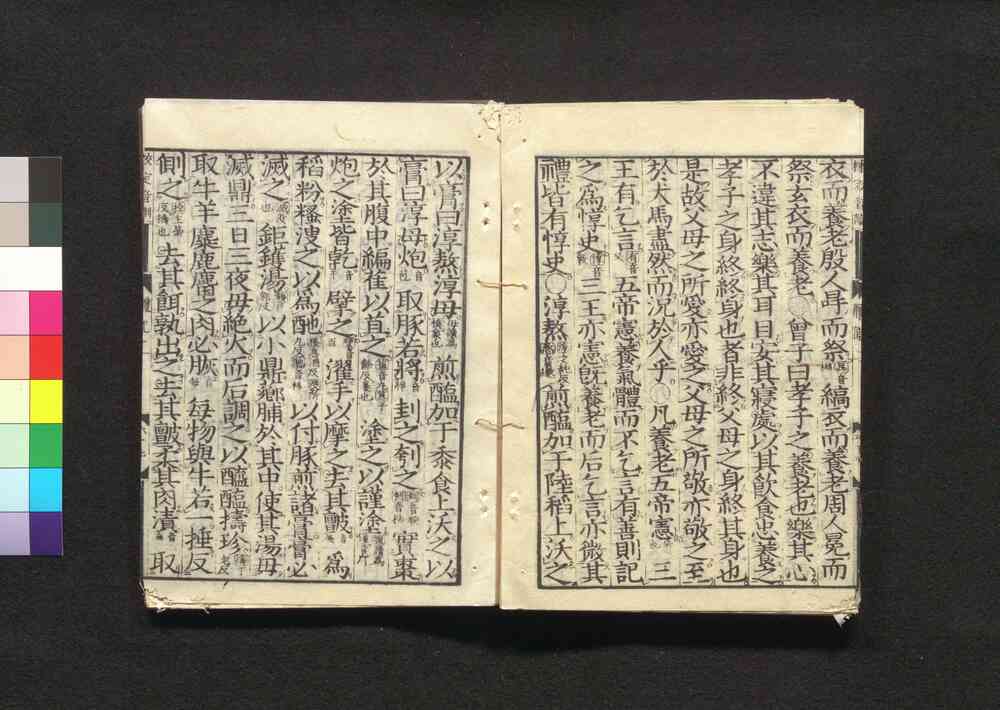 衣而養老殷人冔而祭縞衣而養老周人冕而
祭玄衣而養老○曾子曰孝子之養老也樂其心
不違其志樂其耳目安其寢處以其飲食忠養之
孝子之身終終身也者非終父母之身終其身也
是故父母之所愛亦愛之父母之所敬亦敬之至
於犬馬盡然而況於人乎○凡養老五帝憲三
王有乞言五帝憲養氣體而不乞言有善則記
之爲惇史三王亦憲既養老而后乞言亦微其
禮皆有惇史○淳熬煎醢加于陸稻上沃之
以膏曰淳熬淳母煎醢加于黍食上沃之以
膏曰淳母炮取豚若將刲之刳之實棗
於其腹中編萑以苴之塗之以謹塗
炮之塗皆乾擘之濯手以摩之去其皽爲
稻粉糔溲之以爲酏以付豚煎諸膏膏必
滅之鉅鑊湯以小鼎薌脯於其中使其湯毋
滅鼎三日三夜毋絶火而后調之以醯醢擣珍
取牛羊麋鹿麕之肉必脄每物與牛若一捶反
側之去其餌孰出之去其皽柔其肉漬取